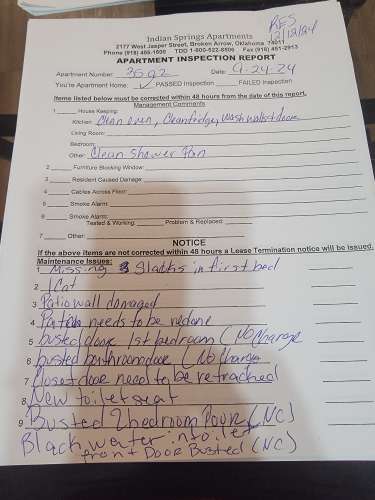 RES
12/12/24
Indian Springs Apartments
2177 West Jasper Street, Broken Arrow, Oklahoma 74011
APARTMENT INSPECTION REPORT
Apartment Number: Date: 9-24-24
You're Apartment Home: ✓ PASSED Inspection FAILED Inspection
Items listed below must be corrected within 48 hours from the date of this report.
Management Comments
1 House Keeping:
Kitchen: Clean oven, Clean fridge, wash walls & door
Living Room:
Bedroom:
Other: Clean Shower Pan
2 Furniture Blocking Window:
3 Resident Caused Damage:
4 Cables Across Floor:
5 Smoke Alarm:
6 Smoke Alarm:
Tested & Working: Problem & Replaced:
7 Other:
NOTICE
If the above items are not corrected within 48 hours a Lease Termination notice will be issued.
Maintenance Issues:
1 Missing 3 Slacks in first bed
2 1 Cat
3 Patio wall damaged
4 needs to be redone
5 busted door 1st bedroom (No Charge
6 busted bathroom door (No Charge
7 Closet door need to be retracked
8 New toilet seat
9 Busted 2 bedroom Door (NC)
Black water in toilet
front Door Busted (NC)